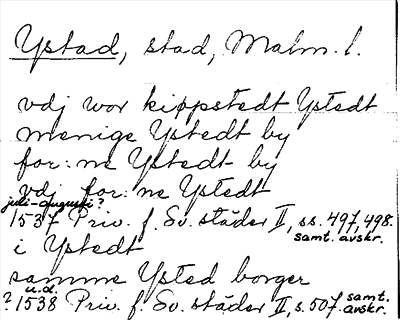 Ystad, stad, Malm. l.
vdj wor kiøpstedt Ystedt
menige Ystedt by
for:ne Ystedt by
vdj for:ne Ystedt
juli-augusti?
1537 Priv. f. Sv. städer II, ss. 497, 498.
samt. avskr.
i Ystedt
samme Ysted borger
u.d.
?1538 Priv. f. Sv. städer II, s. 507 samt. avskr.